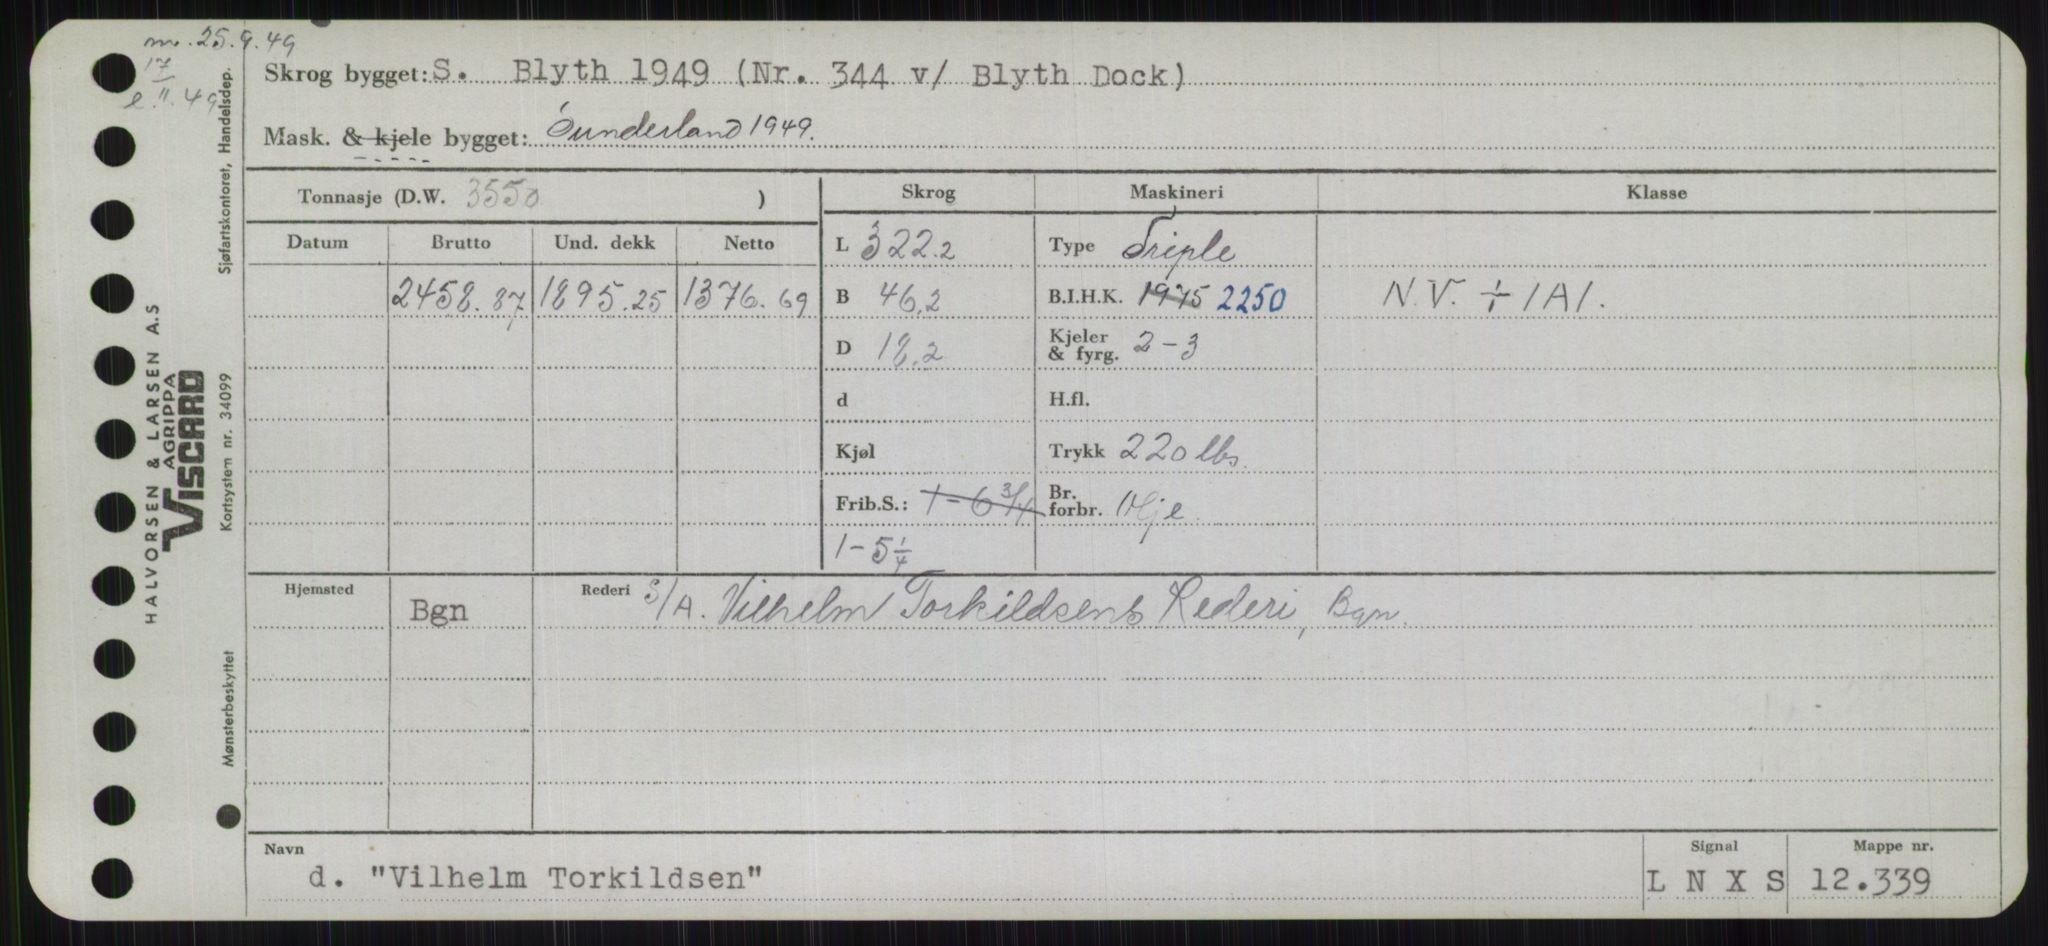 m. 25.9.49
17
e. 11. 49
Skrog bygget: S. Blyth 1949 (Nr. 344 v/ Blyth Dock)
Mask. & kjele bygget: Sunderland 1949.
Tonnasje (D.W. 3550 )
Skrog Maskineri Klasse
Datum Brutto Und. dekk Netto
L 322.2 Type Triple
2458.87 1895.25 1376.69
B 46.2 B.I.H.K. 1975 2250 N.V. + 1A1.
D 18.2 Kjeler & fyrg. 2-3
d H.fl.
Kjøl Trykk 220 lbs.
Frib.S.: 1-6 3/4 Br. forbr. Olje
1-5 1/4
Hjemsted Bgn Rederi S/A. Vilhelm Torkildsens Rederi, Bgn.
Navn Signal Mappe nr.
d. "Vilhelm Torkildsen" L N X S 12.339
HALVORSEN & LARSEN A.S
AGRIPPA
VISCARD
Mønsterbeskyttet Kortsystem nr. 34099 Sjøfartskontoret, Handelsdep.